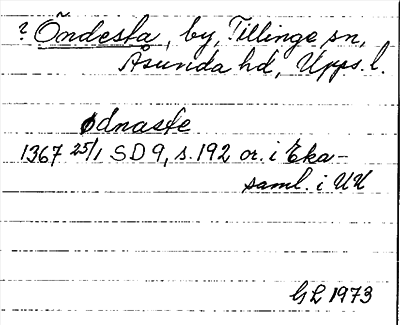 ? Öndesta, by, Tillinge sn,
Åsunda hd, Upps. l.
ødnaste
1367 25/1 SD 9, s. 192 or. i Eka-
saml. i UU
GL 1973